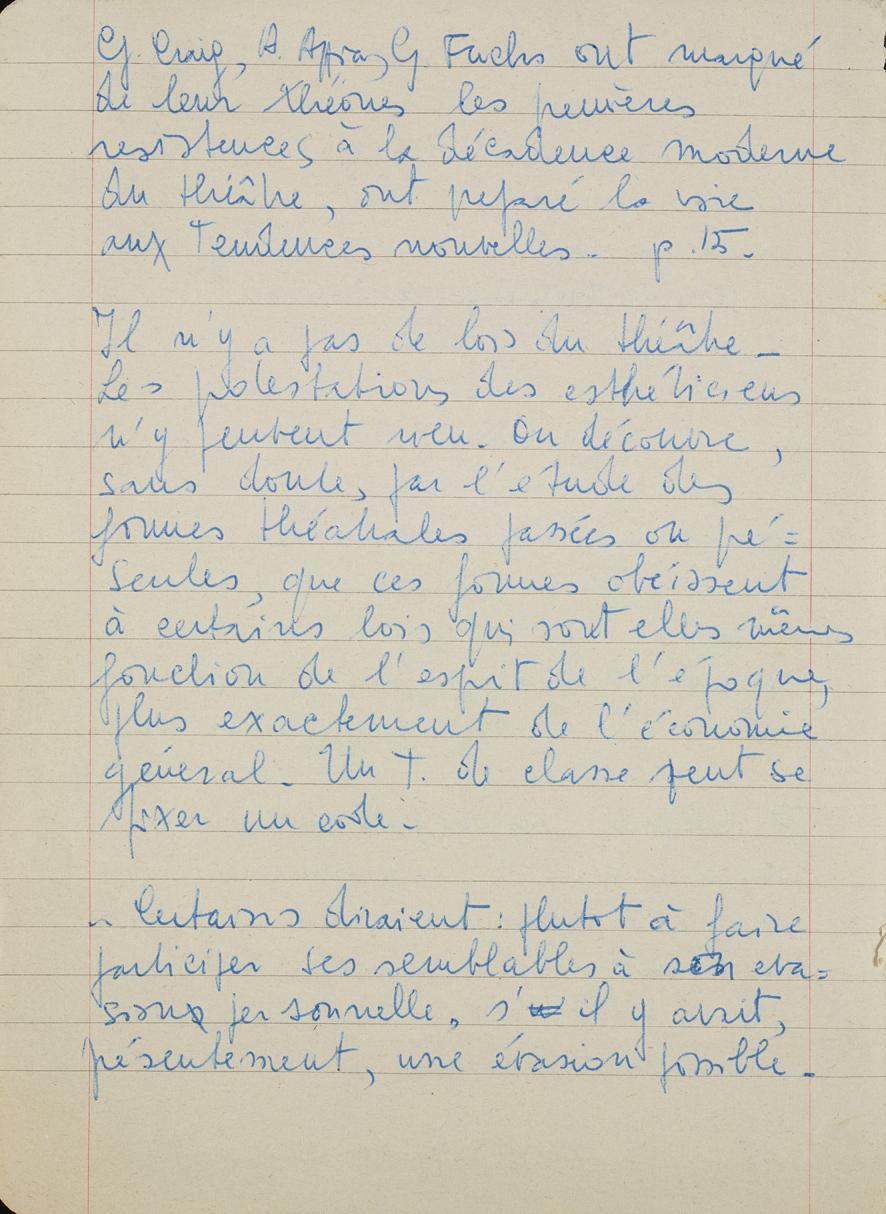 G. Craig, A. Appia, G. Fuchs ont marqué
de leur théories les premières
resistences à la décadence moderne
du théâtre, ont preparé la voie
aux Tendences nouvelles. p. 15.
Il n'y a pas de lois du théâtre.
Les protestations des esthéticiens
n'y peuvent rien. On découvre,
sans doute, par l'étude des
formes théatrales passées ou pré=
sentes, que ces formes obéissent
à certains lois qui sont elles mêmes
fonction de l'esprit de l'époque,
plus exactement de l'économie
général. Un T. de classe peut se
fixer un code.
.. Certains diraient: plutot à faire
participer ses semblables à son eva=
sion personnelle, s' il y avait,
présentement, une évasion possible.